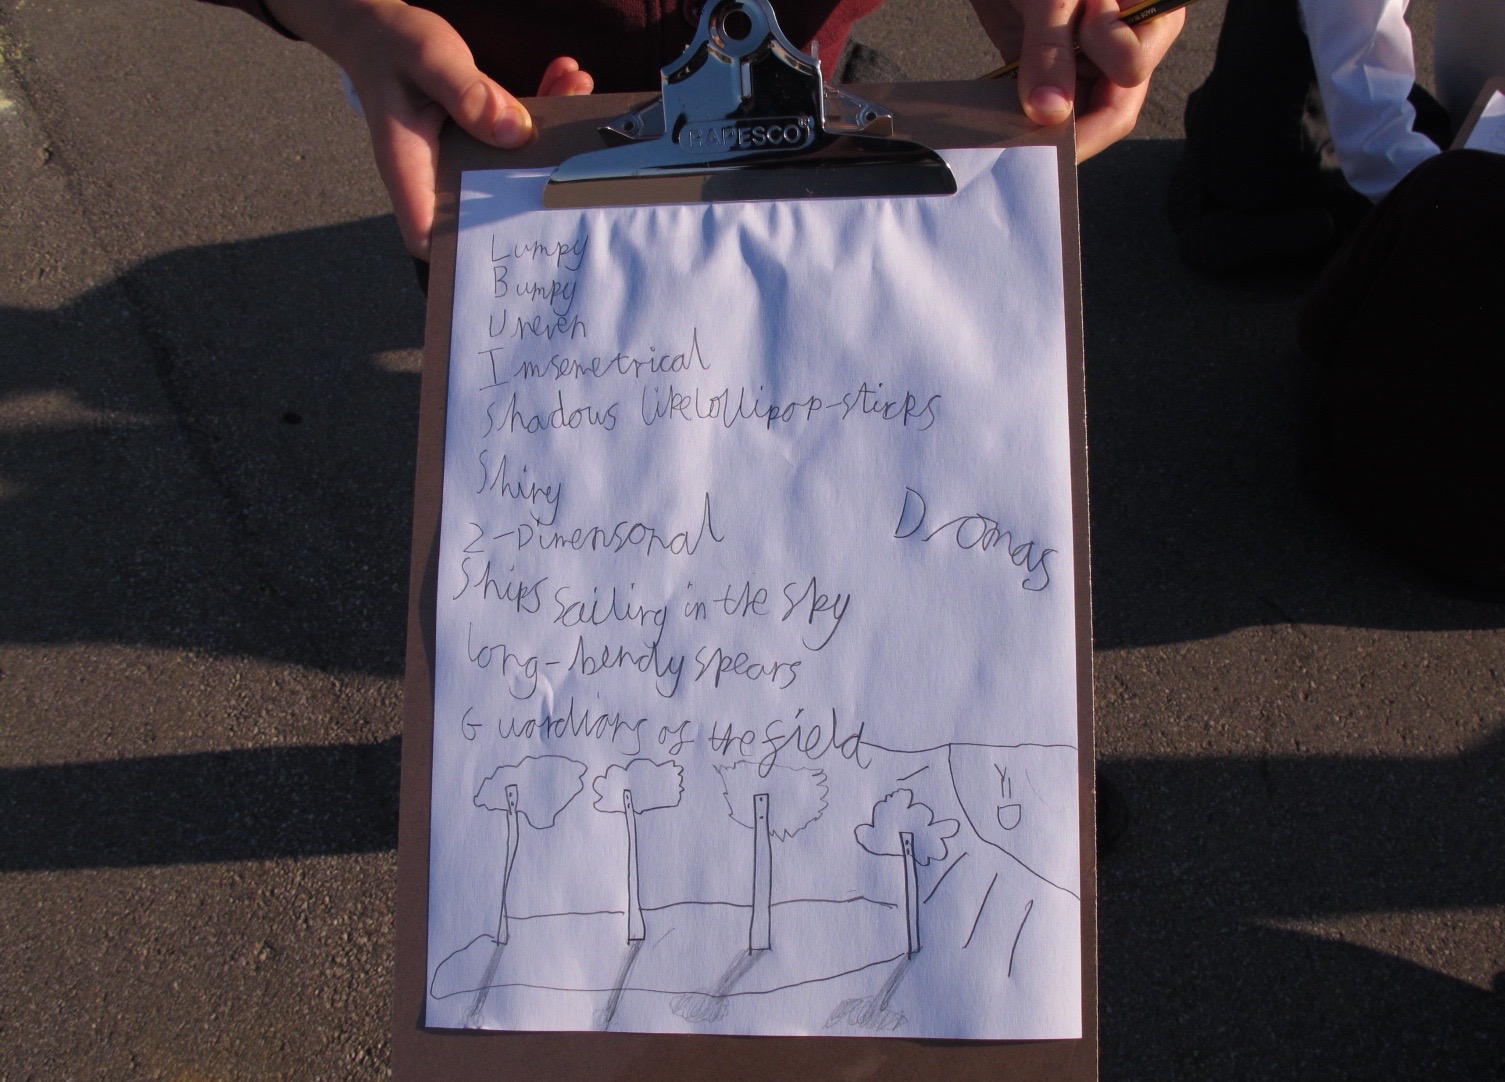 RAPESCO®
Lumpy
Bumpy
Uneven
Imsemetrical
Shadows like lollipop-sticks
Shiny
2-Dimensonal
Dromas
Ships sailing in the sky
long-bendy spears
Guardians of the field